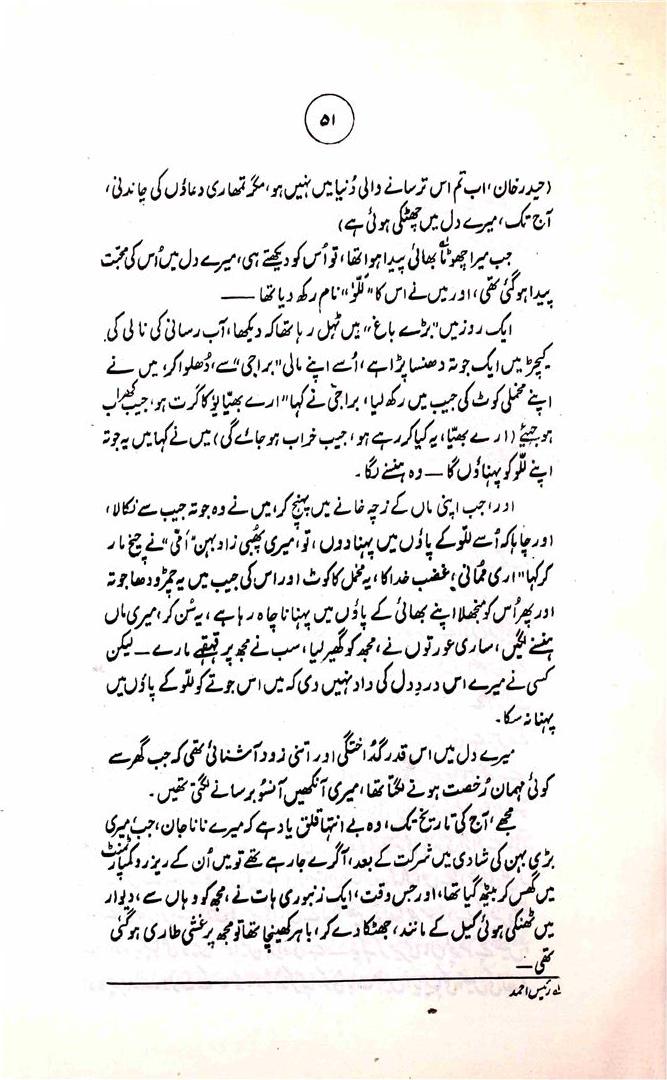 ۵۱
(حیدر خان، اب تم اس ترسانے والی دُنیا میں نہیں ہو، مگر تمھاری دعاؤں کی چاندنی،
آج تک، میرے دل میں چھٹکی ہوئی ہے)
جب میرا چھوٹا۱؎ بھائی پیدا ہوا تھا، تو اُس کو دیکھتے ہی، میرے دل میں اُس کی محبّت
پیدا ہو گئی تھی، اور میں نے اس کا "للّو" نام رکھ دیا تھا ——
ایک روز میں "بڑے باغ" میں ٹہل رہا تھا کہ دیکھا، آب رسانی کی نالی کی
کیچڑ میں ایک جوتہ دھنسا پڑا ہے، اُسے اپنے مالی "براجی" سے، دُھلوا کر، میں نے
اپنے مخملی کوٹ کی جیب میں رکھ لیا، براجی نے کہا "ارے بھیّا یؤ کا کرت ہو، جیب کھراب
ہو جیئے (ارے بھیّا، یہ کیا کر رہے ہو، جیب خراب ہو جائے گی) میں نے کہا میں یہ جوتہ
اپنے للّو کو پہناؤں گا — وہ ہنسنے لگا۔
اور، جب اپنی ماں کے زچہ خانے میں پہنچ کر، میں نے وہ جوتہ جیب سے نکالا،
اور چاہا کہ اُسے للّو کے پاؤں میں پہنا دوں، تو، میری پھُپی زاد بہن "اُمّی" نے چیخ مار
کر کہا "اری مُمانی؛ غضب خدا کا، یہ مخمل کا کوٹ اور اس کی جیب میں یہ چمڑودھا جوتہ
اور پھر اُس کو منجھلا اپنے بھائی کے پاؤں میں پہنانا چاہ رہا ہے، یہ سُن کر، میری ماں
ہنسنے لگیں، ساری عورتوں نے، مجھ کو گھیر لیا، سب نے مجھ پر قہقہے مارے — لیکن
کسی نے میرے اس دردِ دل کی داد نہیں دی کہ میں اس جوتے کو للّو کے پاؤں میں
پہنا نہ سکا۔
میرے دل میں اس قدر گداختگی اور اتنی زود آشنائی تھی کہ جب گھر سے
کوئی مہمان رُخصت ہونے لگتا تھا، میری آنکھیں آنسو برسانے لگتی تھیں۔
مجھے، آج کی تاریخ تک، وہ بے انتہا قلق یاد ہے کہ میرے نانا جان، جب میری
بڑی بہن کی شادی میں شرکت کے بعد، آگرے جا رہے تھے تو میں اُن کے ریزرو کمپارٹمنٹ
میں گھس کر بیٹھ گیا تھا، اور جس وقت، ایک زنبوری ہات نے، مجھ کو وہاں سے، دیوار
میں ٹھنکی ہوئی کیل کے مانند، جھٹکا دے کر، باہر کھینچا تھا تو مجھ پر غشی طاری ہو گئی
تھی —
۱؎ رئیس احمد